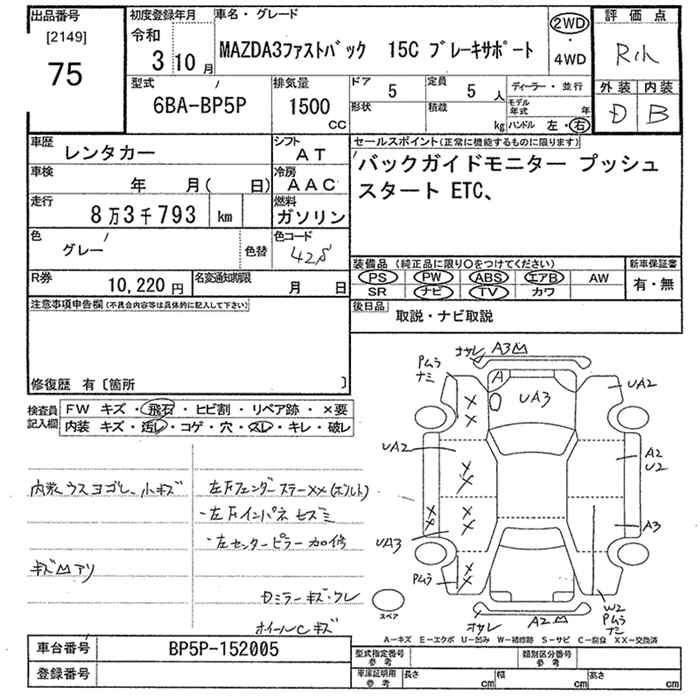 出品番号
[2149]
75
初度登録年月
令和
3 10 月
車名・グレード
MAZDA3ファストバック 15C ブレーキサポート
2WD
・
4WD
評価点
外装 内装
D B
型式
6BA-BP5P
排気量
1500
CC
ドア
5
定員
5 人
ディーラー・並行
形状
積載
kg
モデル年式 年
ハンドル 左・右
車歴
レンタカー
シフト
AT
車検
年 月( 日)
冷房
AAC
走行
8万3千793 km
燃料
ガソリン
色
グレー
色替
色コード
R券
10,220円
名変通知期限
月 日
セールスポイント(正常に機能するものに限ります)
バックガイドモニター プッシュ
スタート ETC、
装備品 (純正品に限り○をつけてください)
新車保証書
PS PW ABS エアB AW
SR ナビ TV カワ
有・無
後日品
取説・ナビ取説
注意事項申告欄(不具合内容等は具体的に記入して下さい)
修復歴 有〔箇所 〕
検査員
記入欄
FW キズ・飛石・ヒビ割・リペア跡・×要
内装 キズ・汚レ・コゲ・穴・スレ・キレ・破レ
内装ウスヨゴレ、小キズ
左Fフェンダーステー××(ボルト)
・左Fインパネ
・左センターピラー加修
Dミラーキズ・ワレ
ホイールCキズ
A3
A
UA3
UA2
UA2
A2
U2
UA3
A3
A2
W2
スペア
A-キズ E-エクボ U-凹み W-補修跡 S-サビ C-腐食 XX-交換済
車台番号
BP5P-152005
登録番号
型式指定番号
参考
類別区分番号
参考
車庫証明用
参考
長さ cm
幅 cm
高さ cm